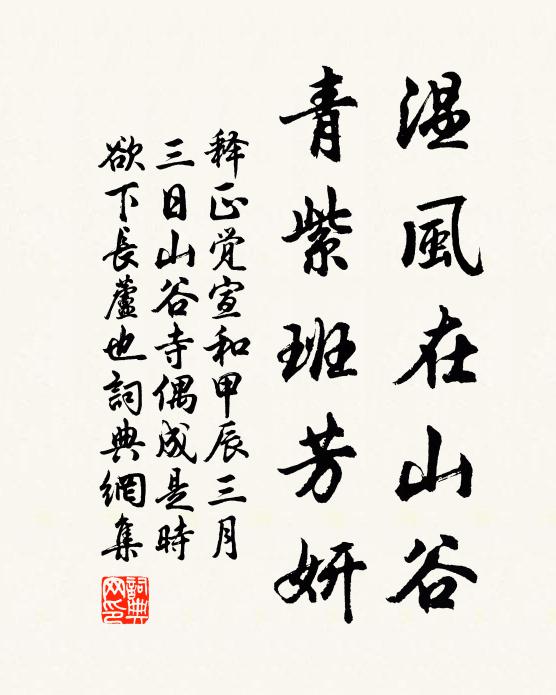 温風在山谷
青紫班芳妍
释正觉宣和甲辰三月
三日山谷寺偶成是時
欲下長蘆也詞典網集
詞典
网印